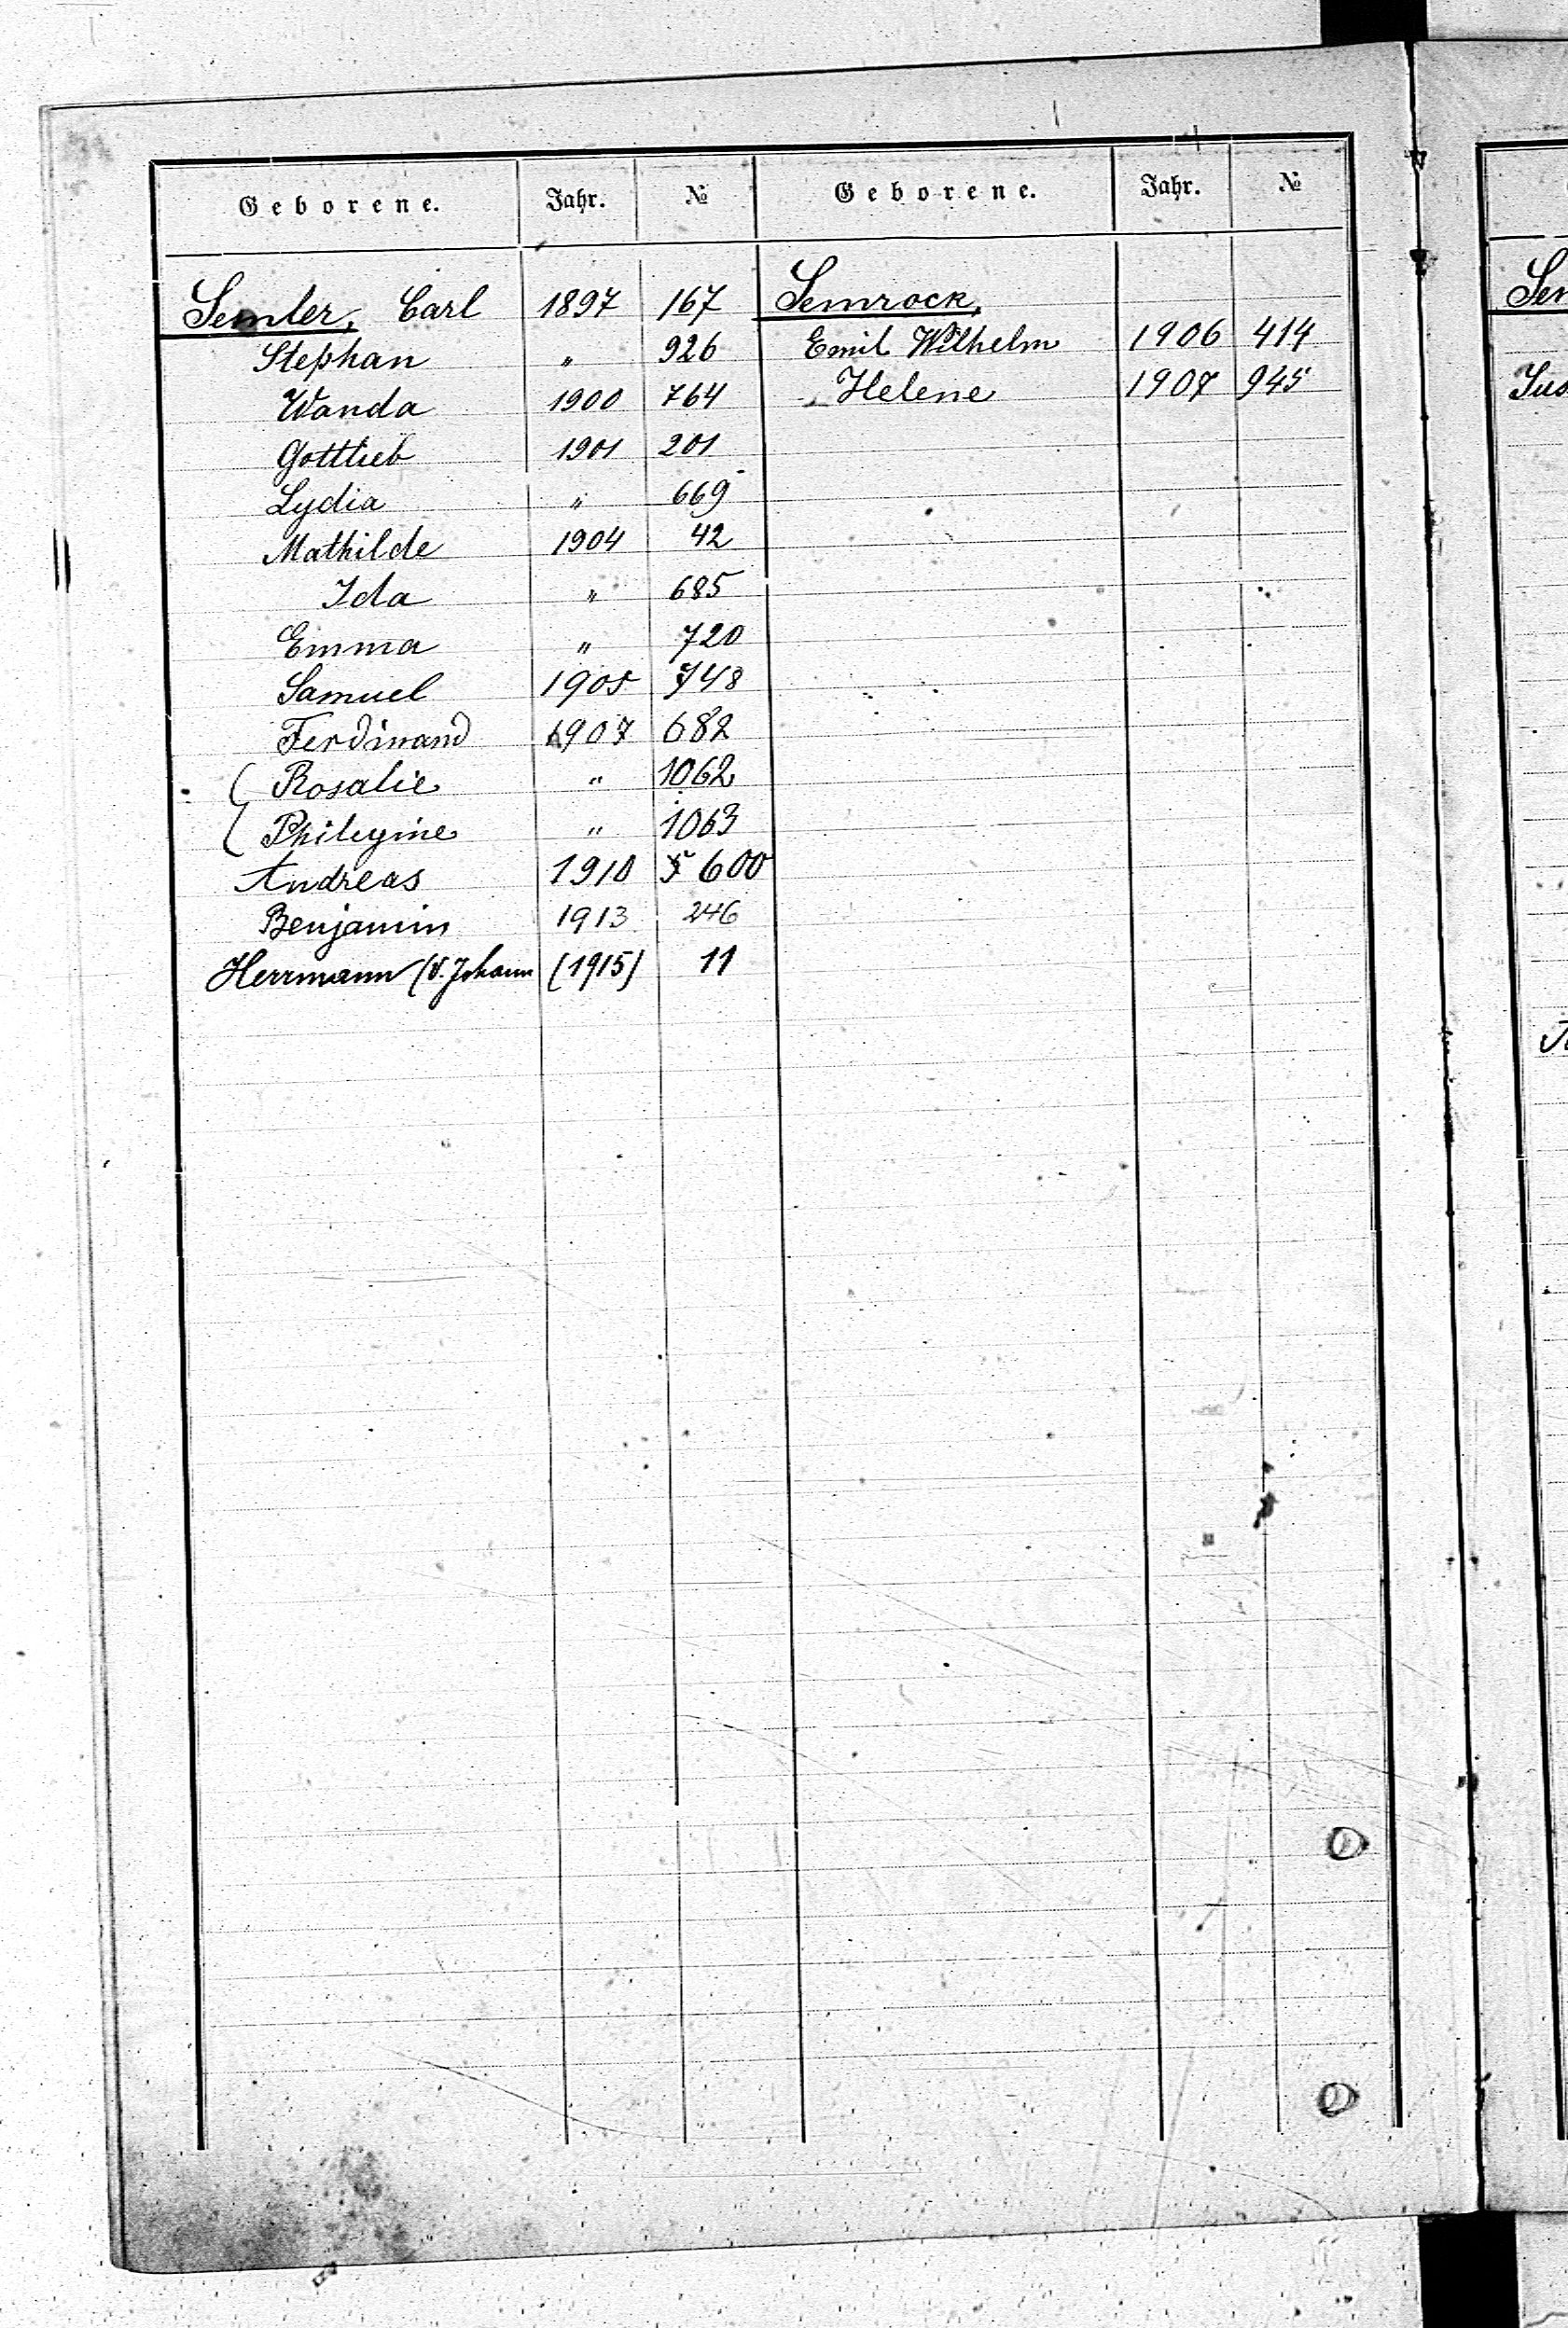 Geborene. Jahr. № Geborene. Jahr. №
Semler, Carl 1897 167
Stephan " 926
Wanda 1900 764
Gottlieb 1901 201
Lydia " 669
Mathilde 1904 42
Ida " 685
Emma " 720
Samuel 1905 748
Ferdinand 1907 682
( Rosalie " 1062
( " 1063
Andreas 1910 600
Benjamin 1913 246
Herrmann (V. Johann (1915) 11
Semrock,
Emil Wilhelm 1906 414
Helene 1907 945